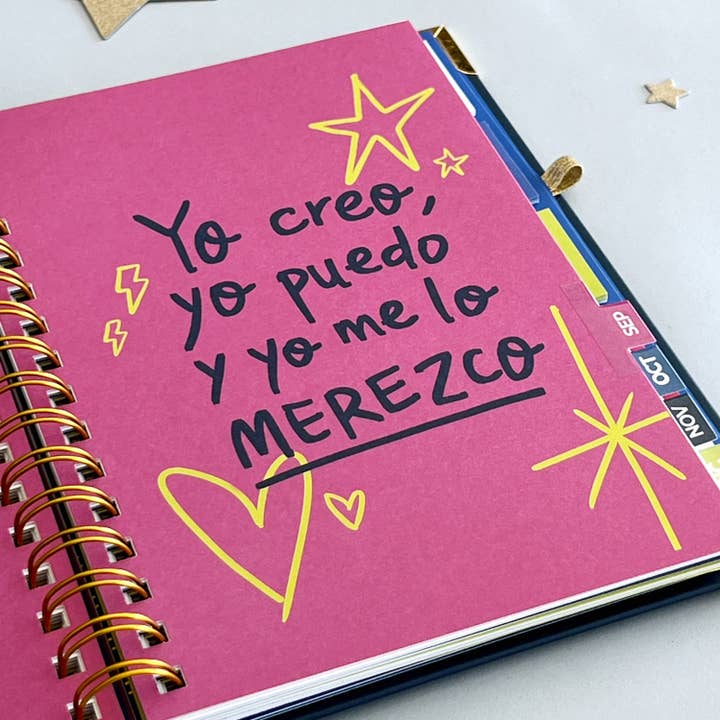 Yo creo,
yo puedo
y yo me lo
MEREZCO
SEP
OCT
NOV